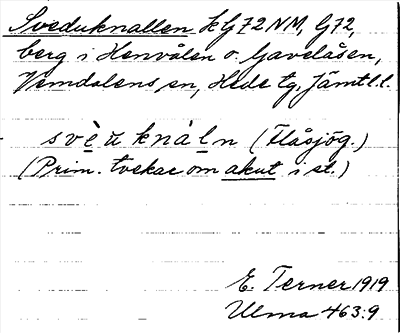 Sveduknallen hG72NM, G72,
berg i Henvålen o. Gavelåsen,
Vemdalens sn, Hede tg, Jämtl.l.
svèu knàln (Flåsjög.)
(Prim. tvekar om akut i st.)
E. Terner 1919
Ulma 463:9